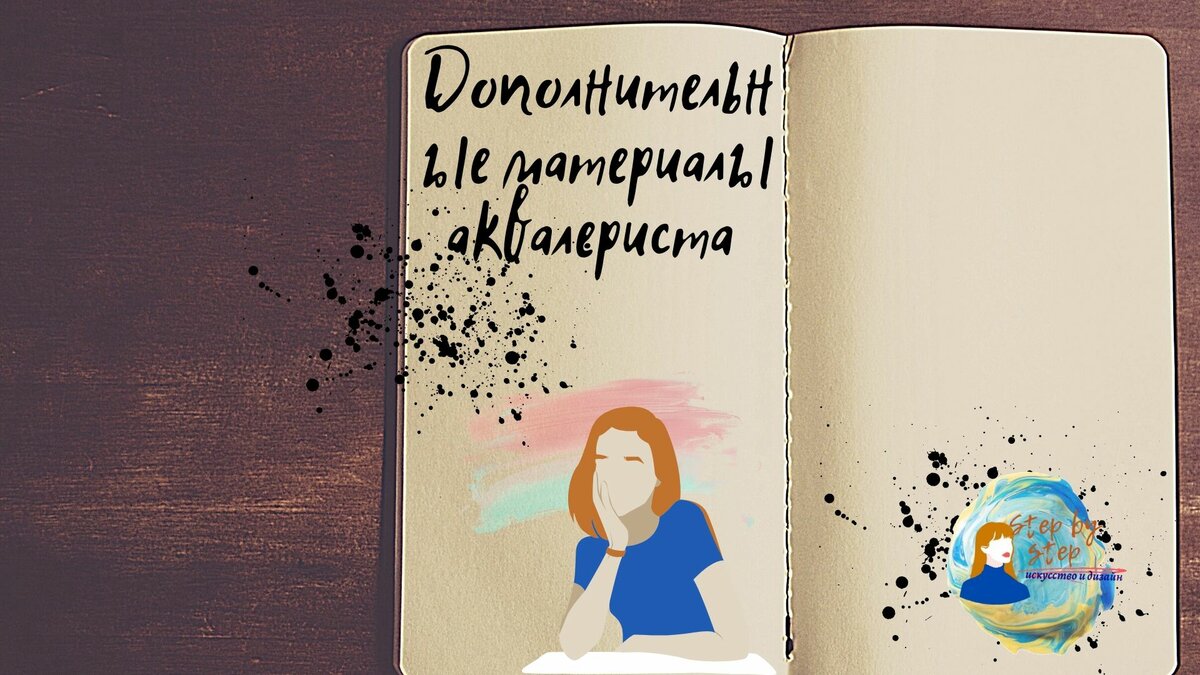 Дополнительн
ые материалы
аквалериста
Step by
step
искусство и дизайн